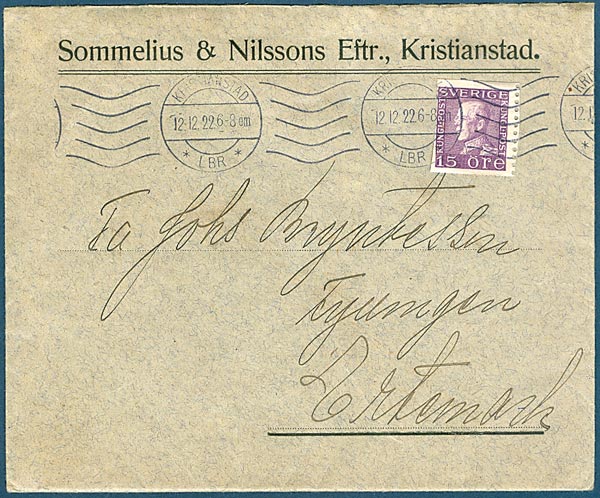 Sommelius & Nilssons Eftr., Kristianstad.
KRISTIANSTAD
12.12.22.6-8 em
* LBR *
KRISTIANSTAD
12.12.22.6-8
* LBR *
*KRIS
12.1
SVERIGE
KUNGL.POST
KUNGL.POST
15 ÖRE
Fa Johs Bryntessen
Ertemark